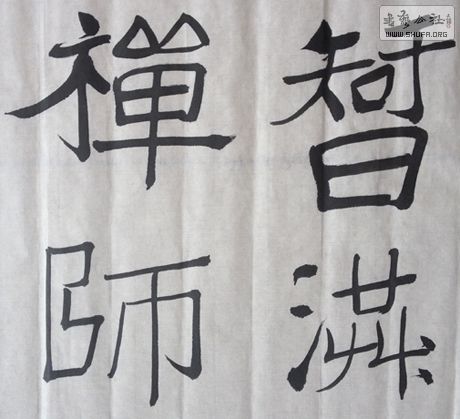 智
禪師
書藝公社
WWW.SHUFA.ORG